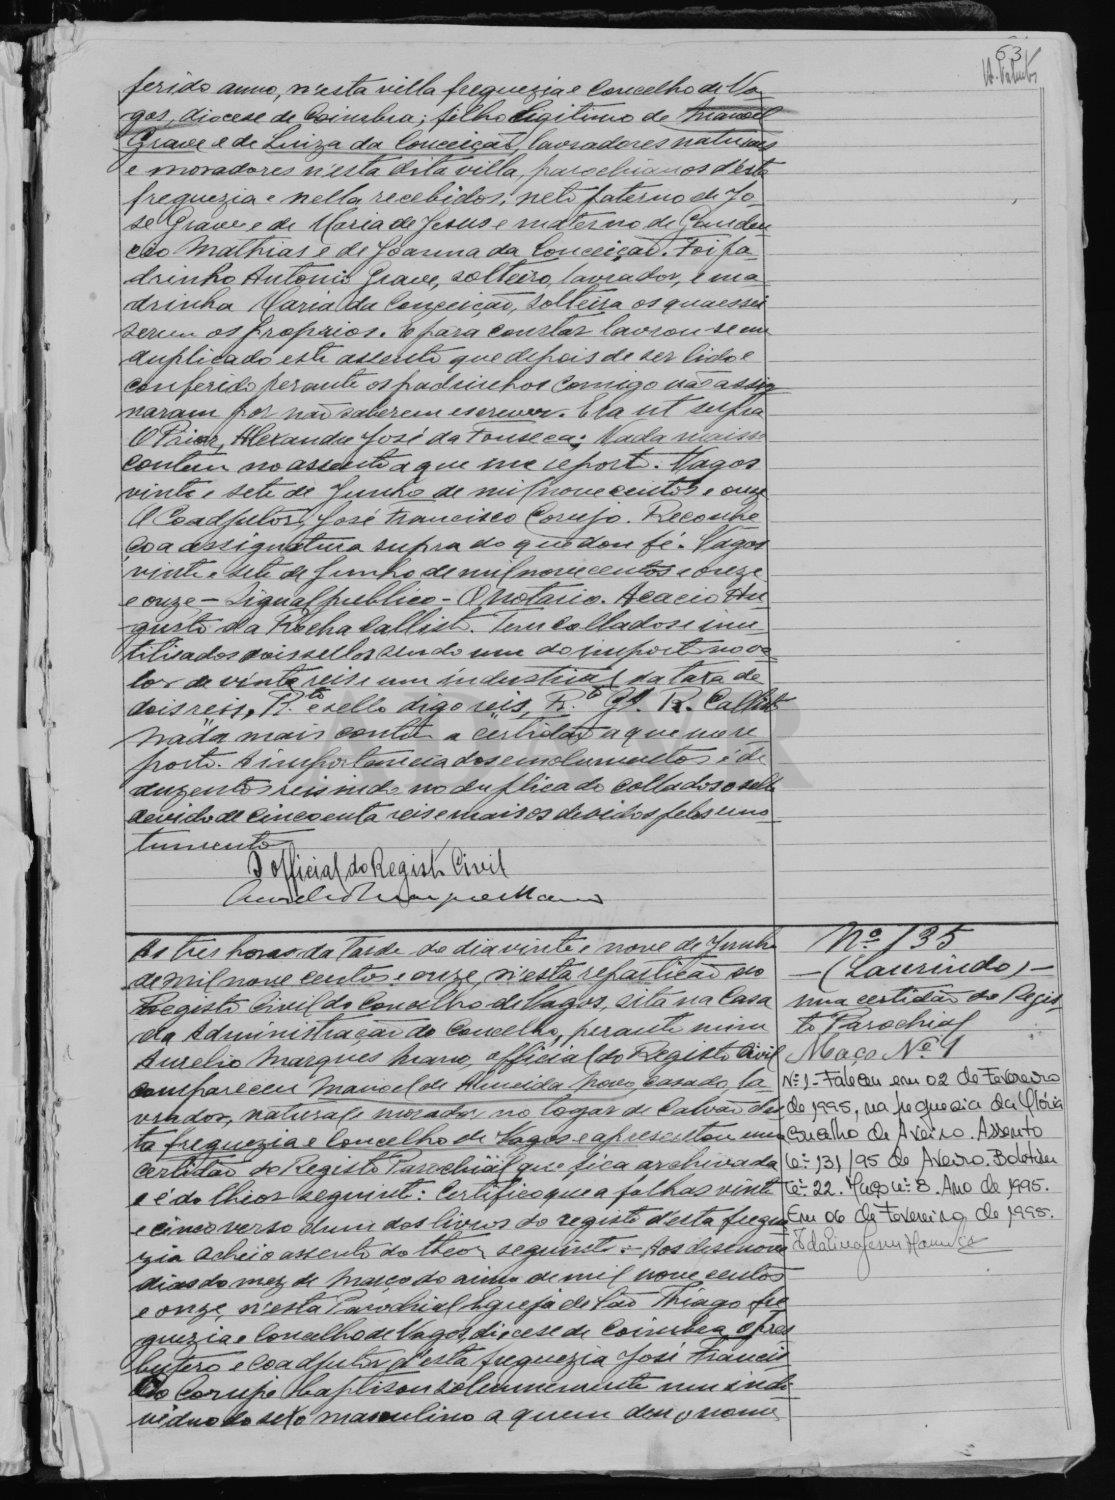 63
ferido anno, n'esta villa freguezia e Concelho de Va
gos, diocese de Coimbra; filho legitimo de Manoel
Grave e de Luiza da Conceição, lavradores naturaes
e moradores n'esta dita villa, parochianos d'esta
freguezia e nella recebidos; neto paterno de Jo-
sé Grave e de Maria de Jesus e materno de
Mathias e de Joanna da Conceição. Foi pa-
drinho Antonio Grave, solteiro, lavrador, e ma-
drinha Maria da Conceição, solteira os quaes sei
serem os proprios. E para constar lavrou-se em
duplicado este assento que depois de ser lido e
conferido perante os padrinhos comigo não assig
naram por não saberem escrever. Era ut supra
O Prior, Alexandre José da Fonseca; Nada mais se
contem no assento a que me reporto. Vagos
vinte e sete de Junho de mil nove centos e onze
O Coadjutor, José Francisco Corujo. Reconhe
ço a assignatura supra do que dou fé. Vagos
vinte e sete de Junho de mil nove centos e onze
e onze – Signal publico – O notario. Acacio Au
gusto da Rocha Callisto. Tem collados e inu-
tilisados dois sellos sendo um do imposto no va
lor de vinte reis e um industrial da taxa de
dois reis. R.to e sello digo reis, R.to gs. R. Callisto
Nada mais contem a certidão a que me re
porto. A importancia dos emolumentos é de
duzentos reis indo no duplicado collados o sello
devido de cincoenta reis e mais os devidos pelos emo
lumentos
O official do Registo Civil
Aurelio Marques Mano
Ás tres horas da tarde do dia vinte e nove de Junho
de mil nove centos e onze, n'esta repartição do
Registo Civil do Concelho de Vagos, sita na Casa
da Administração do Concelho, perante mim
Aurelio Marques Mano, official do Registo Civil
compareceu Manoel de Almeida Novo, casado, la-
vrador, natural e morador no logar de Calvão des
ta freguezia e Concelho de Vagos e apresentou uma
certidão do Registo Parochial que fica archivada
e é do theor seguinte: Certifico que a folhas vinte
e cinco verso d'um dos livros do registo d'esta fregue
zia achei o assento do theor seguinte: – Aos desenove
dias do mez de Março do anno de mil nove centos
e onze, n'esta Parochial Egreja de São Thiago fre
guezia e Concelho de Vagos, diocese de Coimbra, o pres
bytero e Coadjutor d'esta freguezia José Francis
co Corujo baptisou solemnemente um indi-
viduo do sexo masculino a quem deu o nome
Nº 135
– (Laurindo) –
uma certidão do Regis-
to Parochial
Maço Nº 1
Nº 1 - Faleceu em 02 de Fevereiro
de 1995, na freguesia da Glória
Concelho de Aveiro. Assento
nº 131/95 de Aveiro. Boletim
nº 22. Maço nº 8. Ano de 1995.
Em 06 de Fevereiro de 1995.